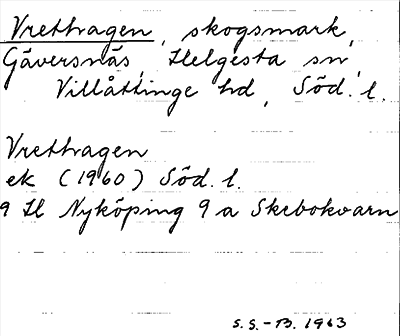 Vrethagen, skogsmark,
Gäversnäs, Helgesta sn,
Villåttinge hd, Söd. l.
Vrethagen
ek (1960) Söd. l.
9 H Nyköping 9 a Skebokvarn
S.S.-B. 1963